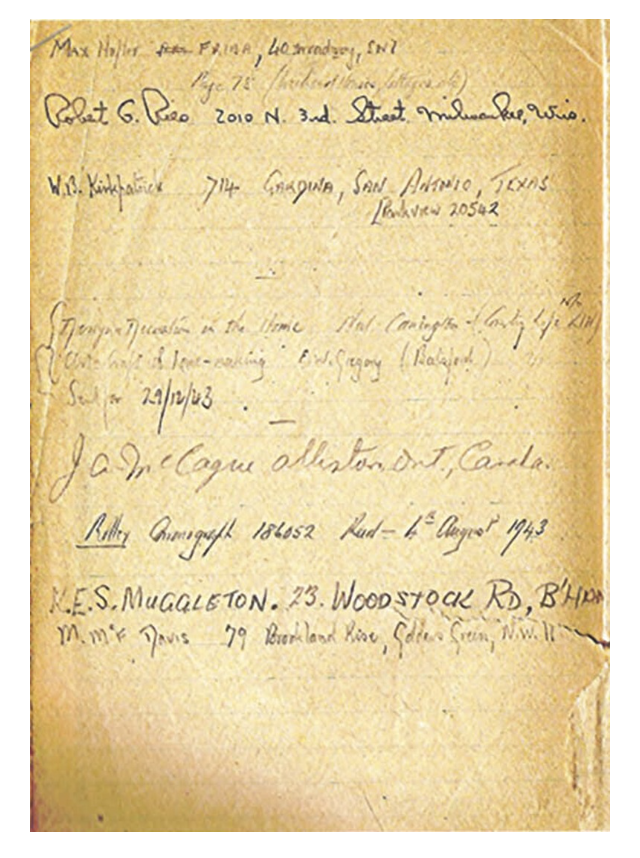 Max FRIBA, 40 Broadway, SW1
Page 75
Robert G. 2010 N. 3rd. Street. Milwaukee, Wis.
W.B. Kirkpatrick 714 GARDINA, SAN ANTONIO, TEXAS
Parkview 20542
Decoration in the Home Noel Carrington - (Country Life
& Home-making Gregory (Batsford)
Send for 29/12/43
J a. McCague Alliston Ont., Canada.
Chronograph 186052 Recd - 4th August 1943
E.S. MUGGLETON. 23. WOODSTOCK RD, B'HAM
M. McF Davis 79 Brookland Rise, Golders Green, N.W. 11